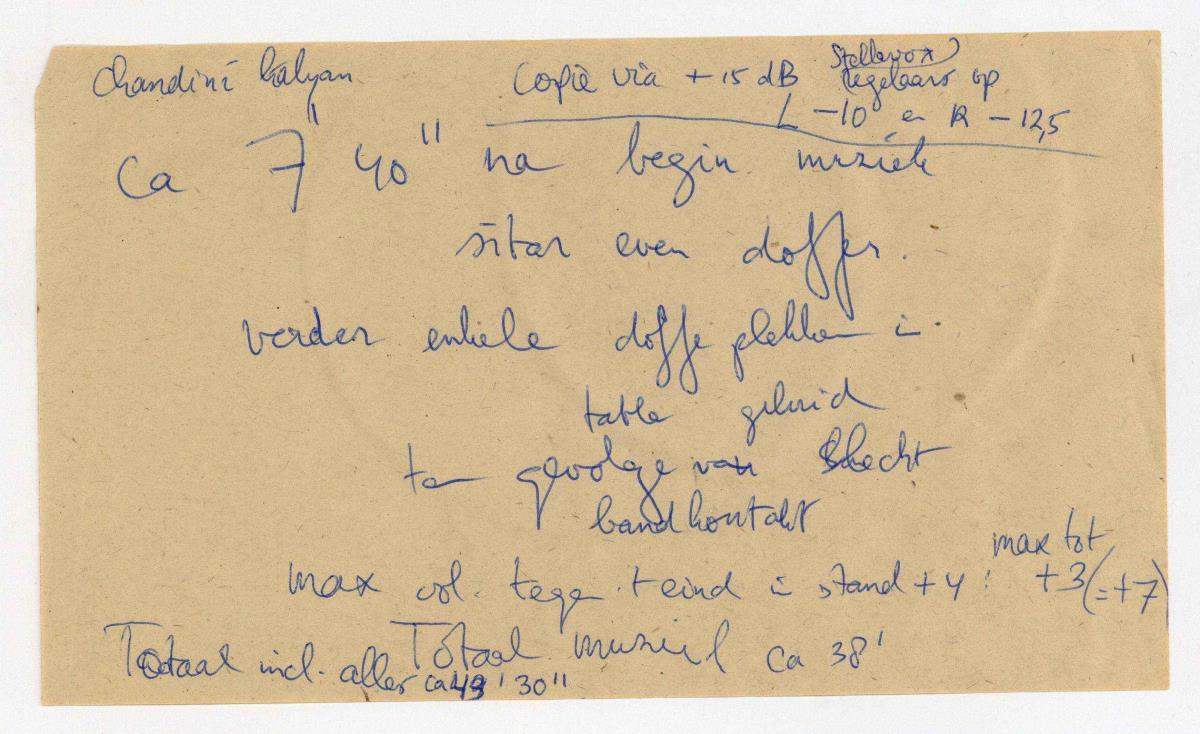 Chandini Kalyan
Copie via + 15 dB Stellavox
regelaars op
L -10 en R - 12,5
Ca 7" 40" na begin muziek
sitar even doffer.
verder enkele doffe plekken in
tabla geluid
ten gevolge van slecht
bandkontakt
max tot
max vol. tegen 't eind in stand + 4 : +3 (= +7)
Totaal muziek ca 38'
Totaal incl. alles ca 43' 30"